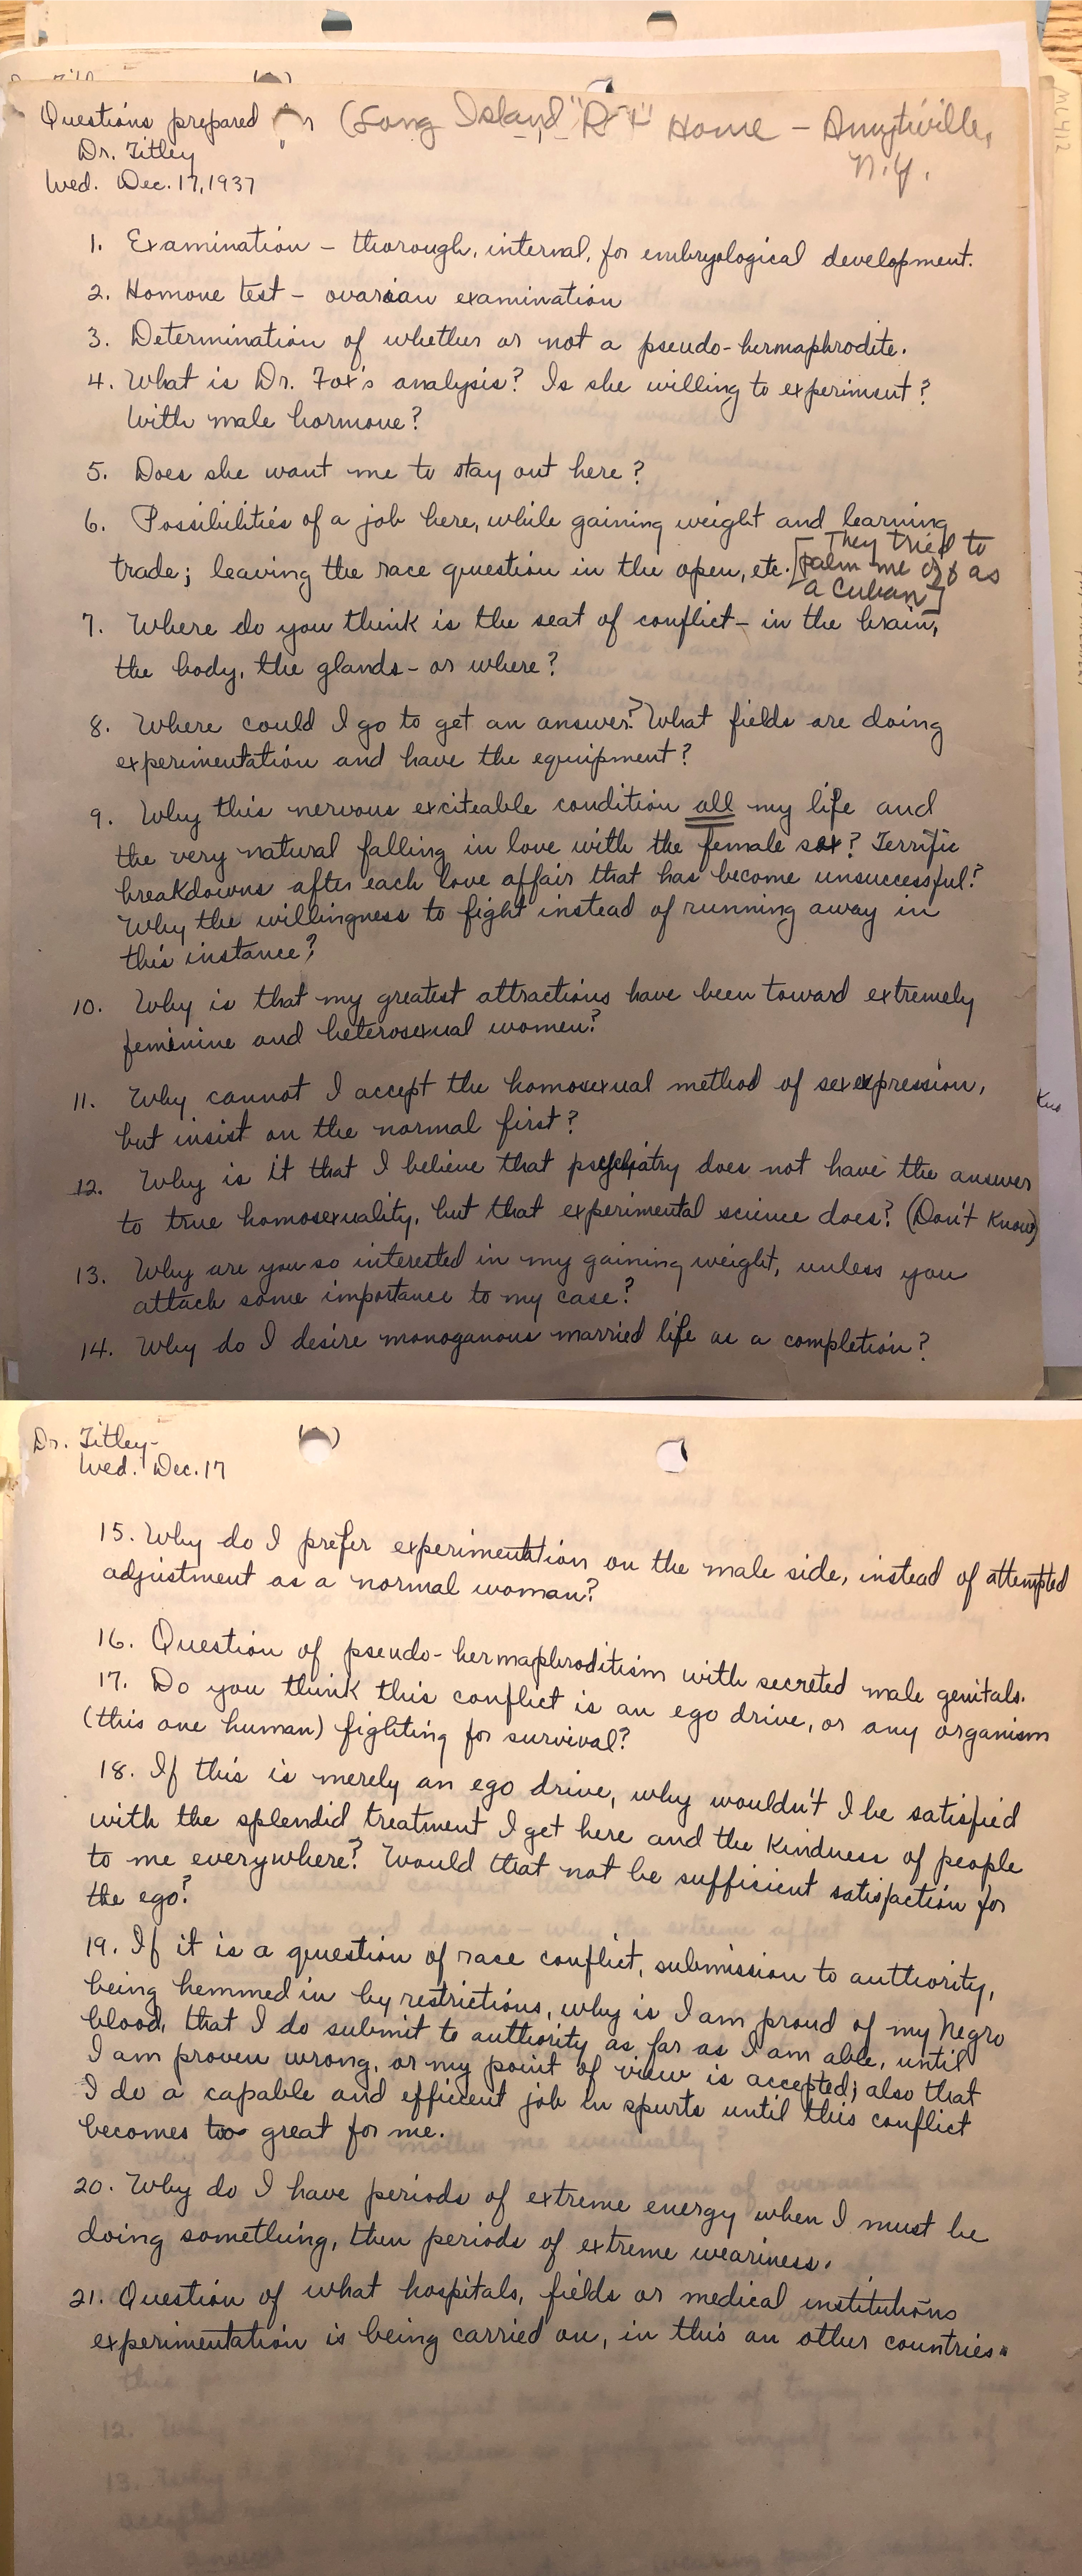 Questions prepared (Long Island "Rest" Home - Amytiville,
Dr. Titley N.Y.
Wed. Dec. 17, 1937
1. Examination - thorough, internal, for embryological development.
2. Homone test - ovarian examination
3. Determination of whether or not a pseudo-hermaphrodite.
4. What is Dr. Fox's analysis? Is she willing to experiment?
With male hormone?
5. Does she want me to stay out here?
6. Possibilities of a job here, while gaining weight and learning
trade; leaving the race question in the open, etc. [They tried to
palm me off as
a Cuban]
7. Where do you think is the seat of conflict - in the brain,
the body, the glands - or where?
8. Where could I go to get an answer? What fields are doing
experimentation and have the equipment?
9. Why this nervous exciteable condition all my life and
the very natural falling in love with the female sex? Terrific
breakdowns after each love affair that has become unsuccessful?
Why the willingness to fight instead of running away in
this instance?
10. Why is that my greatest attractions have been toward extremely
feminine and heterosexual women?
11. Why cannot I accept the homosexual method of sex expression,
but insist on the normal first?
12. Why is it that I believe that psychiatry does not have the answer
to true homosexuality, but that experimental science does? (Don't know)
13. Why are you so interested in my gaining weight, unless you
attach some importance to my case?
14. Why do I desire monoganous married life as a completion?
Dr. Titley-
Wed. Dec. 17
15. Why do I prefer experimentation on the male side, instead of attempted
adjustment as a normal woman?
16. Question of pseudo-hermaphroditism with secreted male genitals.
17. Do you think this conflict is an ego drive, or any organism
(this one human) fighting for survival?
18. If this is merely an ego drive, why wouldn't I be satisfied
with the splendid treatment I get here and the kindness of people
to me everywhere? Would that not be sufficient satisfaction for
the ego?
19. If it is a question of race conflict, submission to authority,
being hemmed in by restrictions, why is I am proud of my Negro
blood, that I do submit to authority as far as I am able, until
I am proven wrong, or my point of view is accepted; also that
I do a capable and efficient job in spurts until this conflict
becomes too great for me.
20. Why do I have periods of extreme energy when I must be
doing something, then periods of extreme weariness.
21. Question of what hospitals, fields or medical institutions
experimentation is being carried on, in this an other countries.